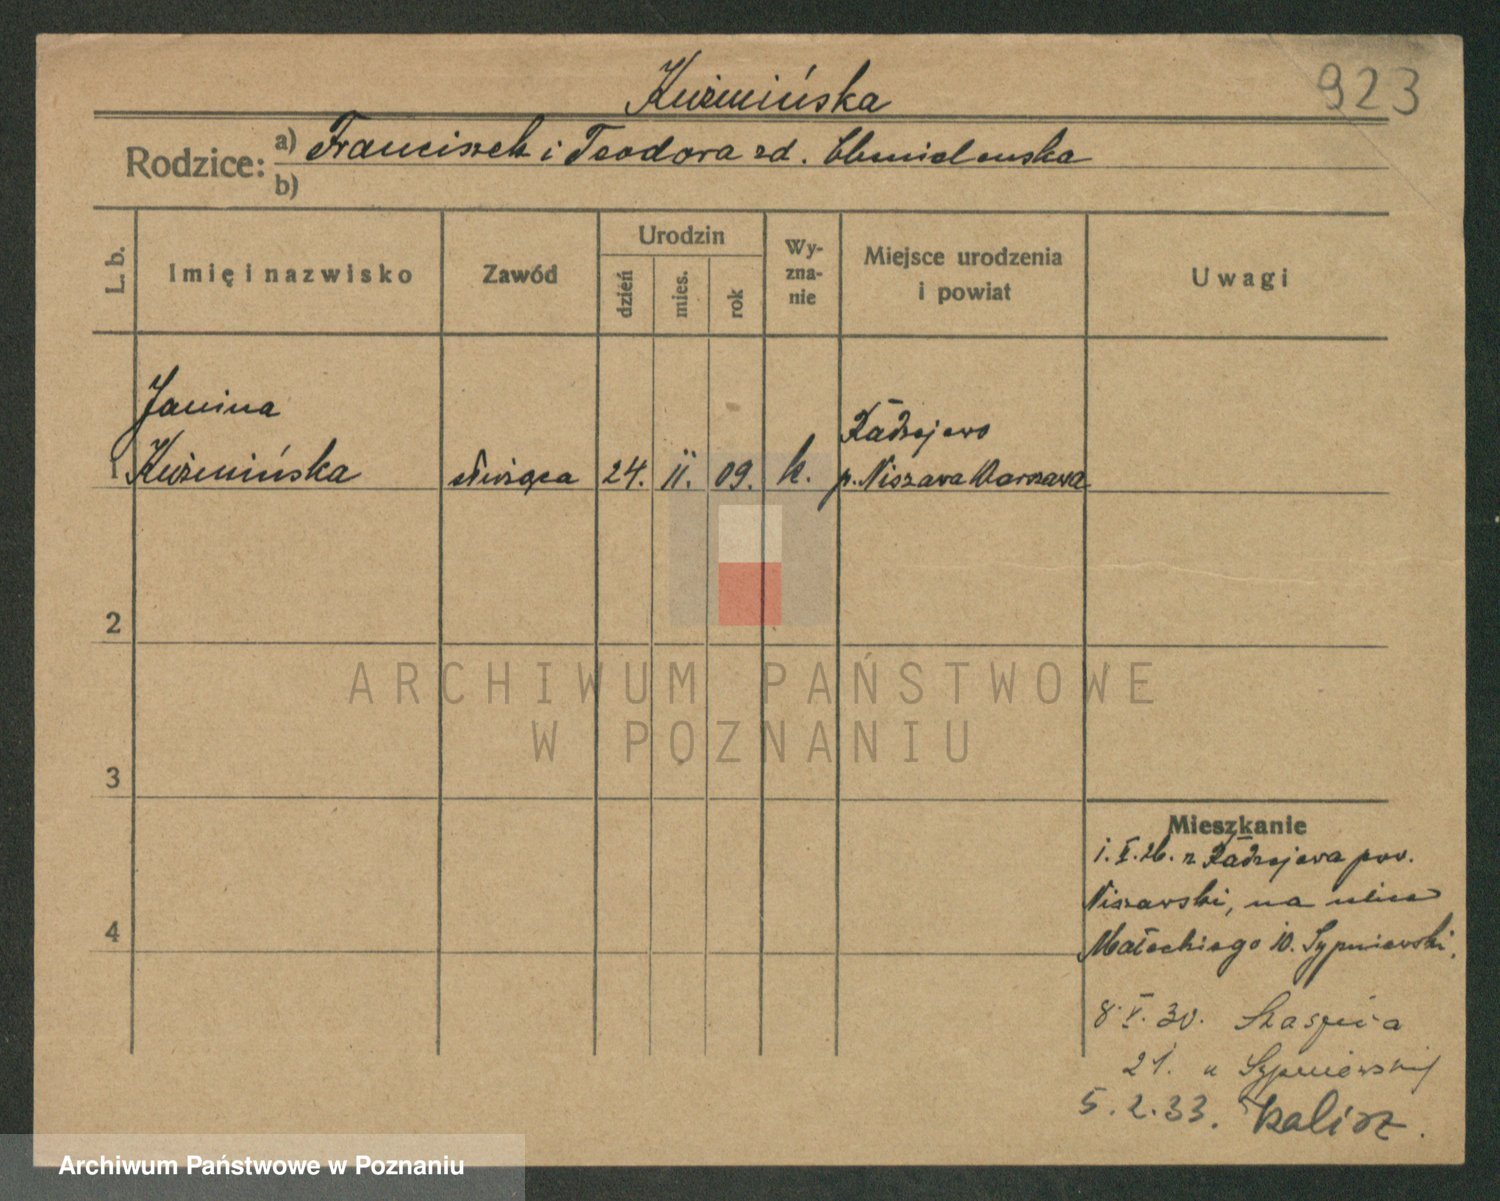 923
Kuźmińska
Rodzice: a) Franciszek i Teodora zd. Chmielewska
b)
L. b.
Imię i nazwisko
Zawód
Urodzin
dzień
mies.
rok
Wy-
zna-
nie
Miejsce urodzenia
i powiat
Uwagi
Janina
1 Kuźmińska
służąca
24. II. 09.
k.
Radziejewo
p. Niszawa Warszawa
2
3
4
Mieszkanie
1. X. 26. z Radziejewa pow.
Niszawski, na ulica
Małeckiego 10. Sypniewski.
8 V. 30. Staszica
21. u Sypniewskij
5. 2. 33. Kalisz.
ARCHIWUM PAŃSTWOWE
W POZNANIU
Archiwum Państwowe w Poznaniu